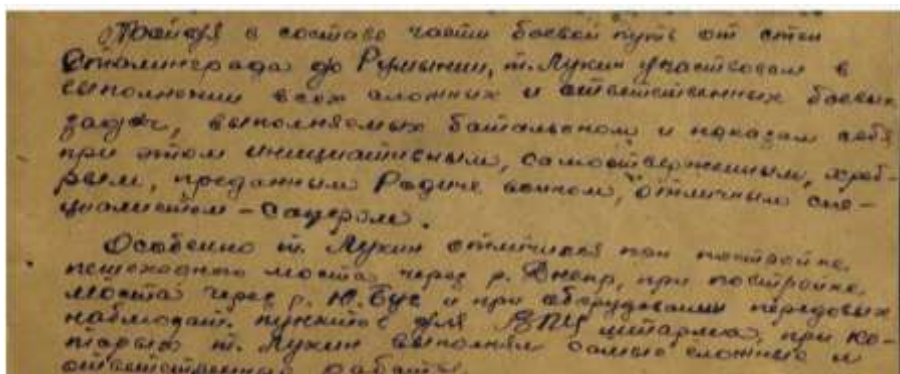 Пройдя в составе части боевой путь от стен
Сталинграда до Румынии, т. Лукин участвовал в
выполнении всех сложных и ответственных боевых
задач, выполняемых батальоном и показал себя
при этом инициативным, самоотверженным, храб-
рым, преданным Родине воином, отличным спе-
циалистом – сапером.
Особенно т. Лукин отличился при постройке
пешеходного моста через р. Днепр, при постройке
моста через р. Ю. Буг и при оборудовании передовых
наблюдат. пунктов для штарма, при ко-
торых т. Лукин выполнял самые сложные и
ответственные работы.